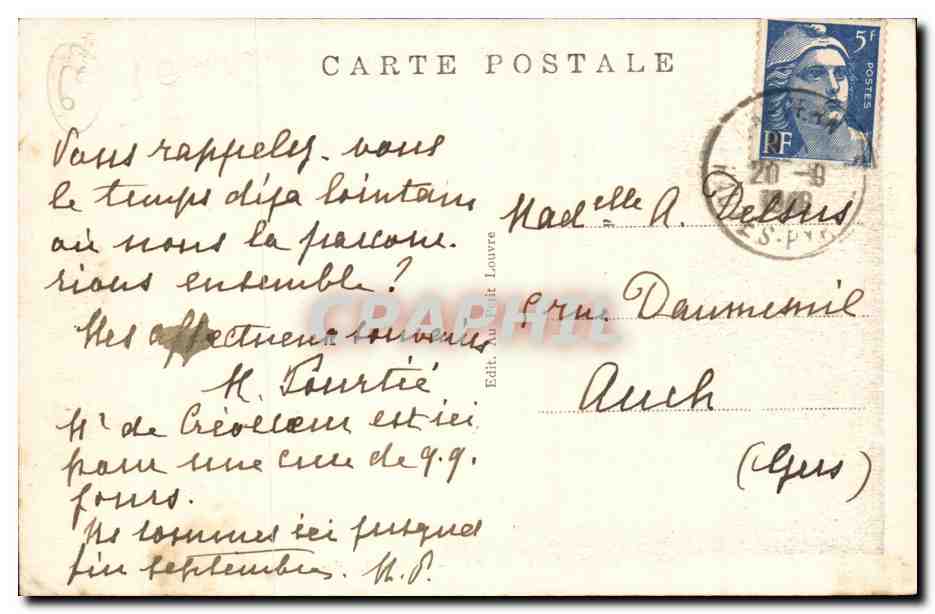 CARTE POSTALE
5F
POSTES
RF
20 -9
ES-PYR
6
Vous rappelez-vous
le temps déja lointain
où nous la parcou-
rions ensemble ?
Mes affectueux souvenirs
M. Pourtié
Mr de est ici
pour une cure de q.q.
jours.
Ns sommes ici jusque
fin septembre. M.P.
Edit. Au Petit Louvre
Madelle A. Delsus
rue Daumesnil
Auch
(Gers)
CPAPHIL